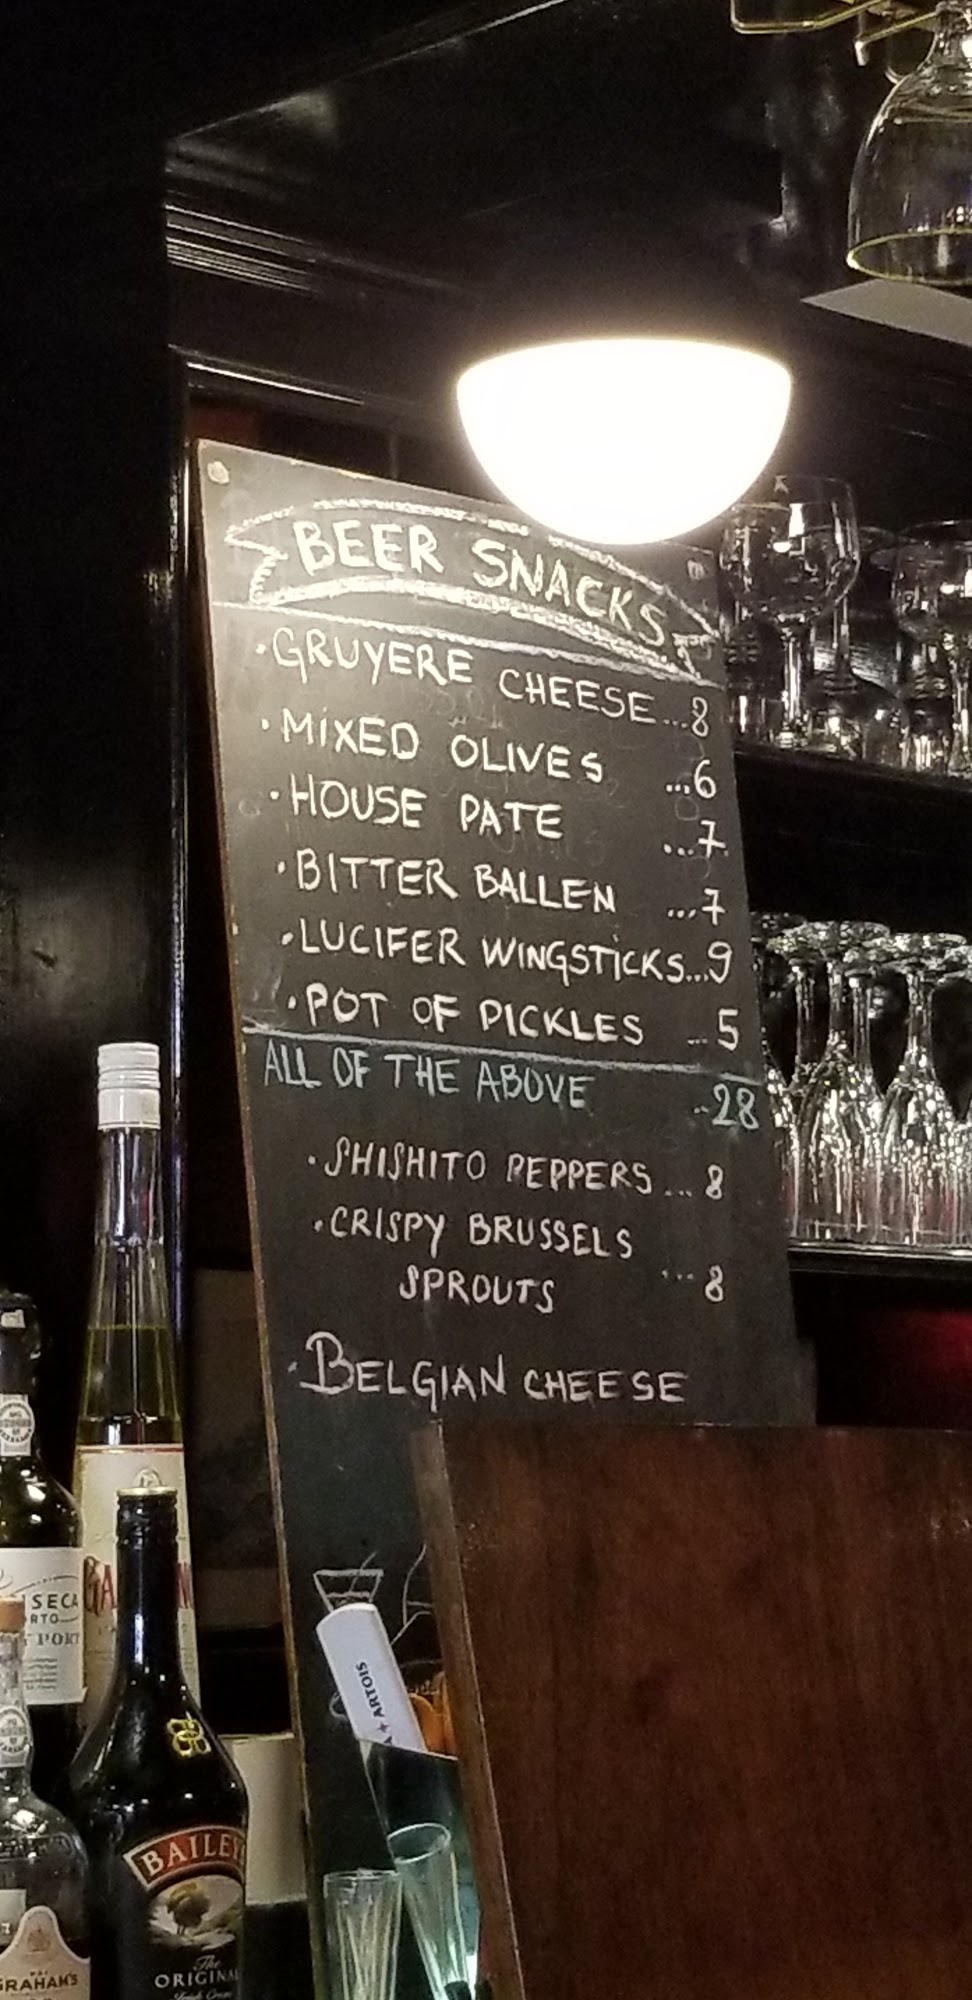 BEER SNACKS
·GRUYERE CHEESE...8
·MIXED OLIVES ...6
·HOUSE PATE ...7
·BITTER BALLEN ...7
·LUCIFER WINGSTICKS...9
·POT OF PICKLES ...5
ALL OF THE ABOVE ..28
·SHISHITO PEPPERS... 8
·CRISPY BRUSSELS
SPROUTS ... 8
·BELGIAN CHEESE
ARTOIS
PORT
BAILEY
The
ORIGINAL
GRAHAM'S